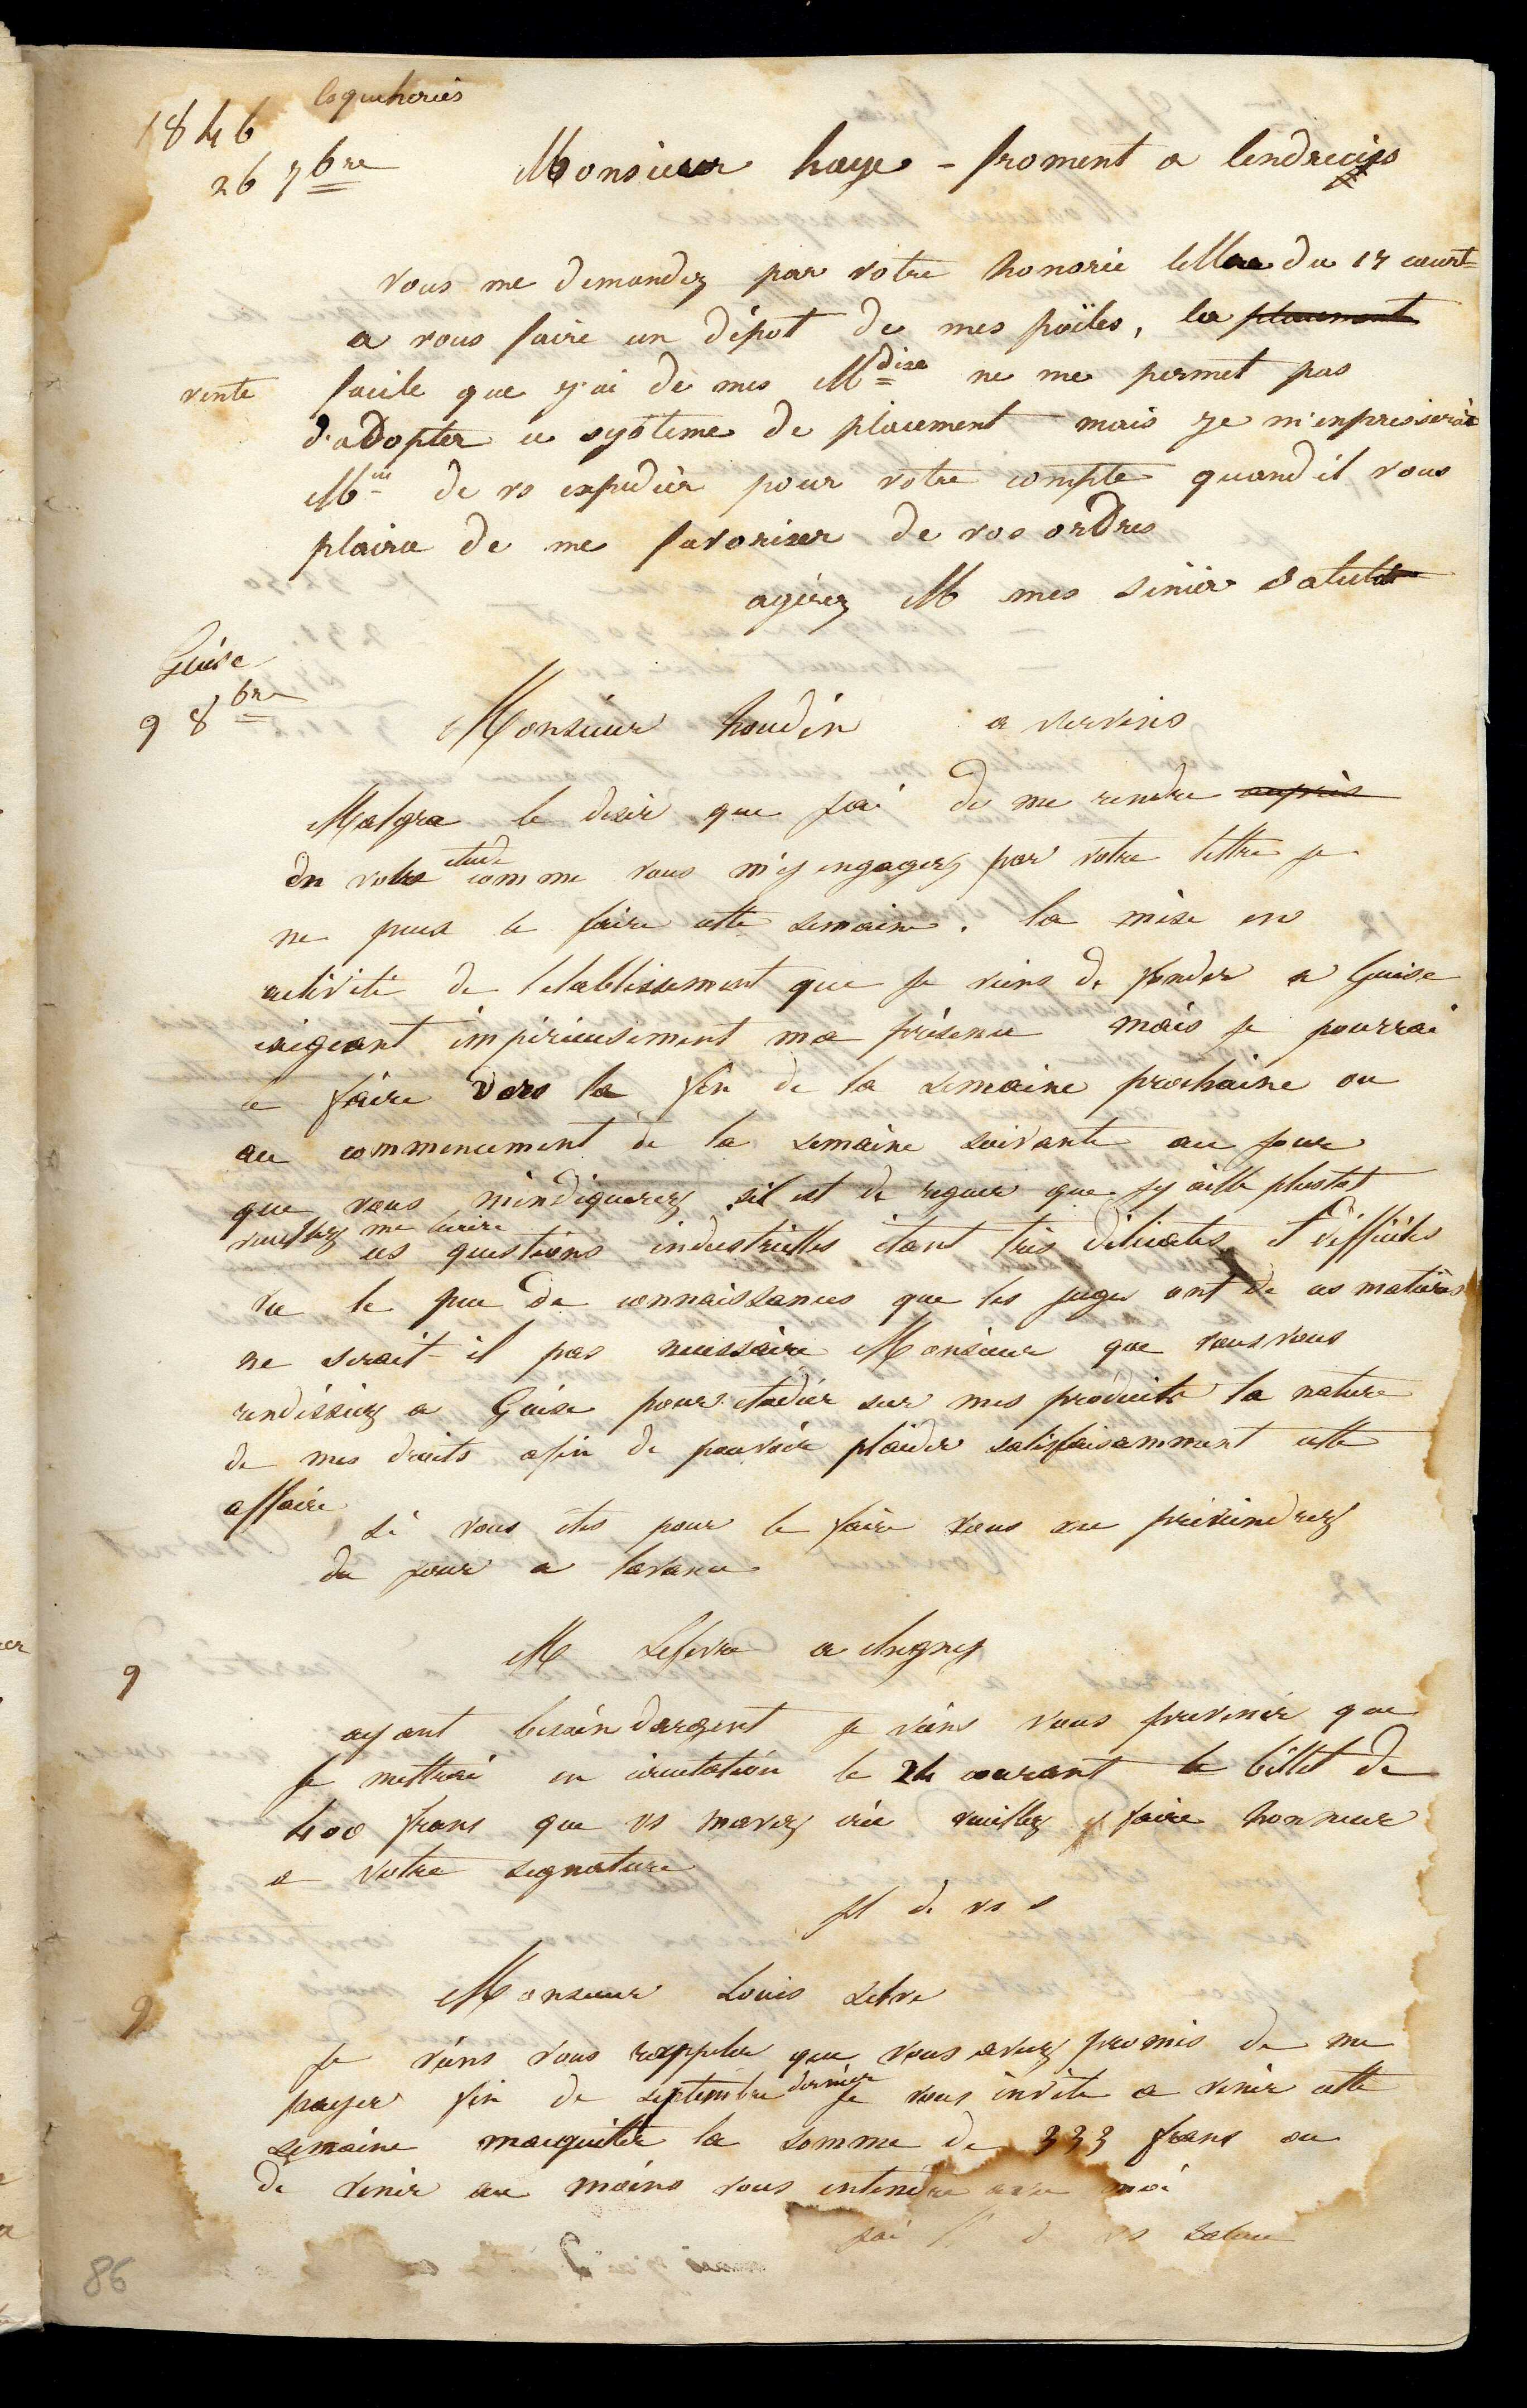 1846 Esqueheries
26 7bre Monsieur haye-froment a landrecies
vous me demandez par votre honorée lettre du 17 court
a vous faire un dépot de mes poëles, la placement
vente facile que j'ai de mes Mdise ne me permet pas
d'adopter ce systeme de placement mais je m'enpresserai
Mr de vs expedier pour votre compte quand il vous
plaira de me favoriser de vos ordres
agérez M mes sincer salut
Guise
9 8bre Monsieur houdin a vervins
Malgra le desir que jai de me rendre auprès
en votre etude comme vous m'y engagez par votre lettre je
ne peux le faire cette semaine. la mise en
activité de letablissement que je viens de fonder a Guise
exigeant impérieusement ma présence mais je pourrai
le faire vers la fin de la semaine prochaine ou
au commencement de la semaine suivante au jour
que vous mindiquerez sil est de reguer que jy aille plustot
veuillez me lecrire
ces questions industrielles étant très délicates et difficiles
vu le peu de connaissances que les juges ont de ces matières
ne serait-il pas necessaire Monsieur que vous vous
rendissiez a Guise pour etudier sur mes produits la nature
de mes droits afin de pouvoir plaider satisfaisamment cette
affaire
Si vous etes pour le faire vous me previendrez
du jour a lavance
9 M Lefevre a
ayant besoin dargent je viens vous prevenir que
je mettrai en circulation le 24 courant le billet de
400 frans que vs mavez crée veuillez y faire honneur
a votre segnature
jl de vs s
9 Monsieur Louis
je viens vous rappeler que vous avez promis de me
payer fin de septembre dernier je vous invite a venir cette
semaine macquiter la somme de 333 frans ou
de venir au moins vous entendre avec moi
jai de vs saluer
86